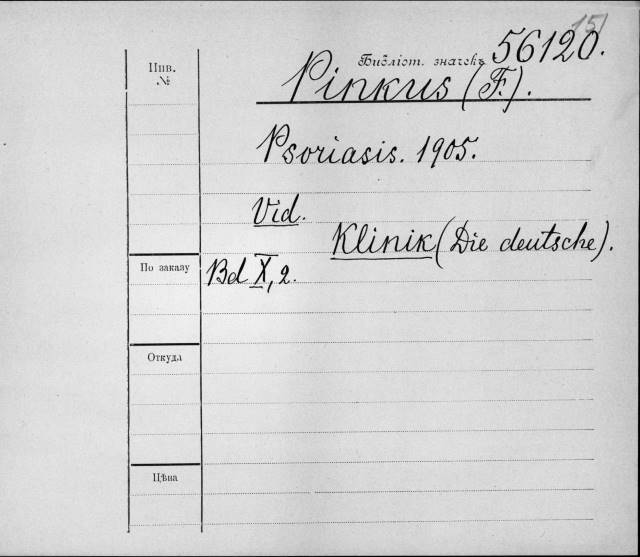 151
Инв.
№
Библіот. значекъ 56120.
Pinkus (F.).
Psoriasis. 1905.
Vid.
Klinik (Die deutsche).
По заказу
Bd X, 2.
Откуда
Цѣна